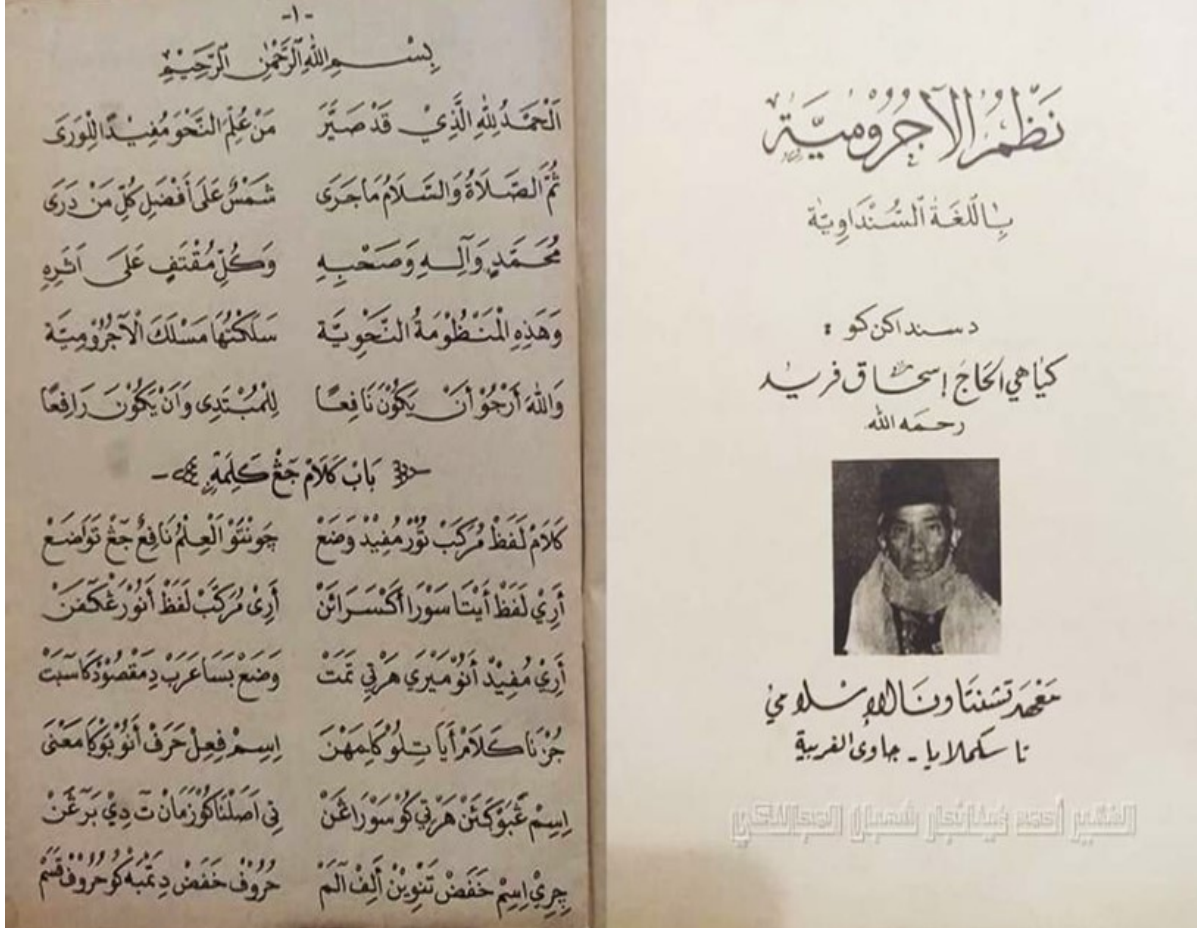 نَظْمُ الْآجُرُوْمِيَّة
بِاللُّغَةِ السُّنْدَاوِيَّة
دسنداكن كو :
كياهي الحاج إسحاق فريد
رحمه الله
معهد تشنتاونا الإسلامي
تاسكملايا - جاوى الغربية
الفقير أحمد شعبان
-١-
بِسْمِ اللهِ الرَّحْمٰنِ الرَّحِيْمِ
اَلْحَمْدُ لِلّٰهِ الَّذِيْ قَدْ صَيَّرَ مَنْ عَلِمَ النَّحْوَ مُفِيْدًا لِلْوَرَى
ثُمَّ الصَّلَاةُ وَالسَّلَامُ مَا جَرَى شَمْسٌ عَلَى أَفْضَلِ كُلِّ مَنْ دَرَى
مُحَمَّدٍ وَآلِهِ وَصَحْبِهِ وَكُلِّ مُقْتَفٍ عَلَى اَثَرِهِ
وَهَذِهِ الْمَنْظُوْمَةُ النَّحْوِيَّة سَلَكْتُهَا مَسْلَكَ الْآجُرُوْمِيَّة
وَاللهَ أَرْجُوْ أَنْ يَكُوْنَ نَافِعًا لِلْمُبْتَدِى وَاَنْ يَكُوْنَ رَافِعًا
بَابْ كَلَامْ جَڠْ كَلِمَةْ -
كَلَامْ لَفَظْ مُرَكَّبْ تُوْرْ مُفِيْدْ وَضَعْ چَونْتَوْ اَلْعِلْمُ نَافِعٌ جَڠْ تَوَاضَعْ
أَرِيْ لَفَظْ أَيْتَا سَوْرَا أَكْسَرَائَنْ أَرِيْ مُرَكَّبْ لَفَظْ أَنُوْ رَڠْكَفَنْ
أَرِيْ مُفِيْدْ أَنُوْ مَيْرَي هَرْتِي تَمَتْ وَضَعْ بَسَا عَرَبْ دِمَقْصُوْدْ كَاسَبَتْ
جُزْنَا كَلَامْ أَيَا تِلُوْ كَلِمَهْنَ اِسِمْ فِعِلْ حَرَفْ أَنُوْ بَوْكَا مَعْنَى
اِسِمْ عَبَوْكَتَنْ هَرْتِي كُوْ سَوْرَاڠَنْ تِي اَصَلْنَا كُوْ زَمَانْ تَ دِيْ بَرَڠَنْ
چِرِيْ اِسِمْ خَفَضْ تَنْوِيْنْ أَلِفْ اَلَمْ حُرُوْفْ خَفَضْ دِتَمْبَهْ كُوْ حُرُوْفْ قَسَمْ